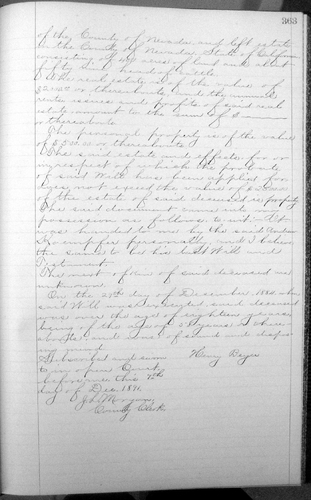 363
of the County of Nevada and left estate
in the County of Nevada State of California
consisting of acres of land and about
fifty head of cattle
The real estate is of the value of
or thereabouts and the annual
rents issues and profits of said real
estate amount to the sum of $
or thereabouts
The personal property is of the value
of $ or thereabouts
The said estate and effects for or
in respect of which the probate
of said Will has been applied for
does not exceed the value of $
of the estate of said deceased is property
The said document came into my
possession as follows to wit: It
was handed to me by the said Andrew
personally, and I believe
the same to be his last Will and
Testament
The next of kin of said deceased is
unknown
On the day of December 188 when
said Will was executed said deceased
was over the age of eighteen years
being of the age of years or there
abouts, and was of sound and dispo
sing mind
Subscribed and sworn Henry
to in open Court
before me this 7th
day of Dec. 1891.
J. L. Morgan
County Clerk